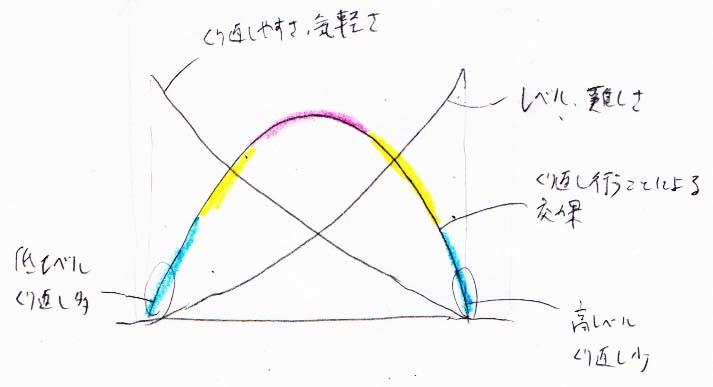 くり返しやすさ、気軽さ
レベル、難しさ
くり返し行うことによる
効果
低レベル
くり返し多
高レベル
くり返し少